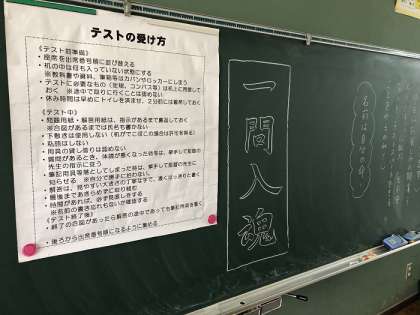 テストの受け方
《テスト前準備》
・座席を出席番号順に並び替える
・机の中は何も入っていない状態にする
※教科書や資料、筆箱等はカバンやロッカーにしまう
・テストに必要なもの(定規、コンパス等)は机上に用意して
おく ※途中で取りに行くことは認めない
・休み時間は早めにトイレを済ませ、2分前には着席しておく
《テスト中》
・問題用紙・解答用紙は、指示があるまで裏返しておく
※合図があるまでは氏名も書かない
・下敷きは使用しない
・私語はしない
・用具の貸し借りは認めない
・質問があるとき、体調が悪くなった時等は、挙手して監督の
先生の指示に従う
・筆記用具等落としてしまった時は、挙手して監督の先生に
知らせる ※自分で勝手に拾わない。
・解答は、見やすい大きさの丁寧な字で、濃くはっきりと書く
・最後まであきらめずに取り組む
・時間があれば、必ず見直しをする
※名前の書き忘れもないか確認する
《テスト終了後》
・終了の合図があったら解答の途中であっても筆記用具を置く
・後ろから出席番号順になるように集める
一問入魂